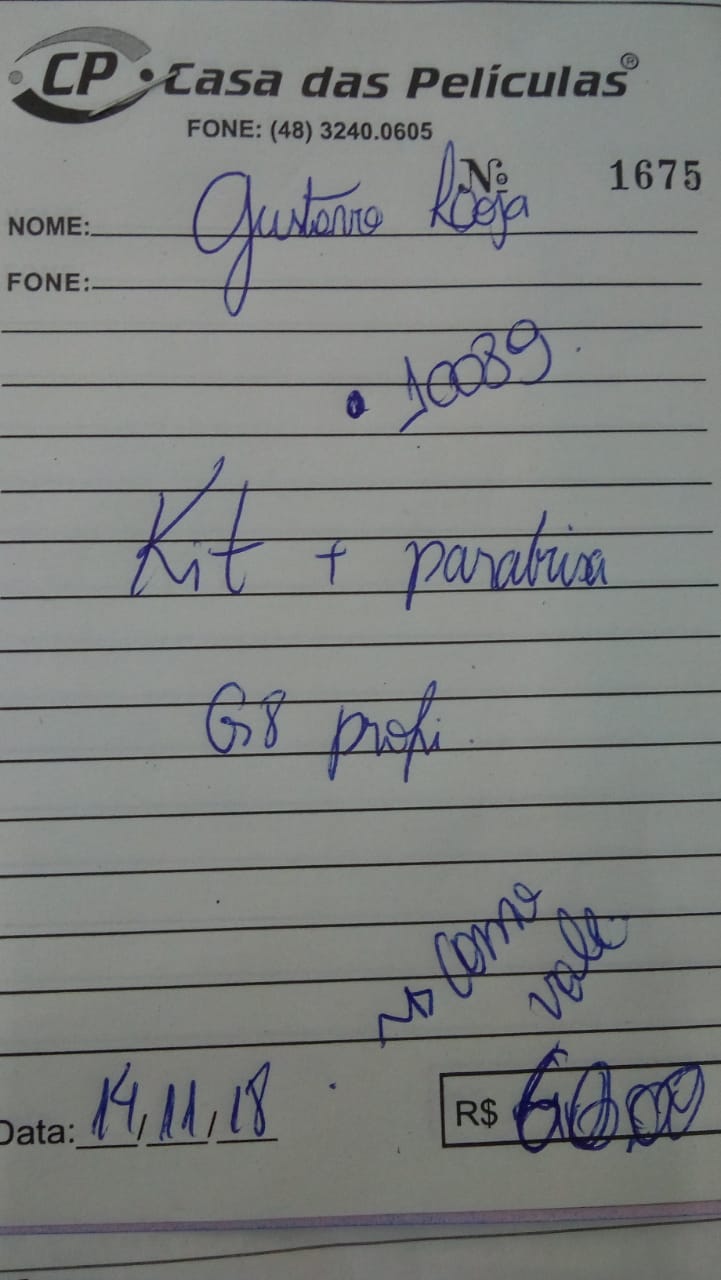 CP • Casa das Películas®
FONE: (48) 3240.0605
Nº 1675
NOME: Gustavo
FONE:
• 10089.
Kit + parabrisa
G8 profi.
Como
vale.
Data: 14/11/18
R$ 60,00